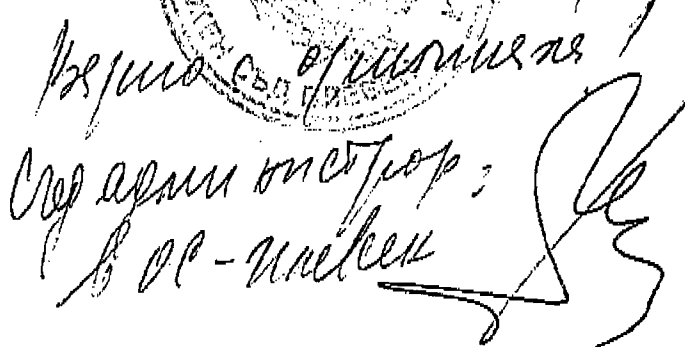 Вярно с оригинала!
Съд администратор:
в ОС-Плевен